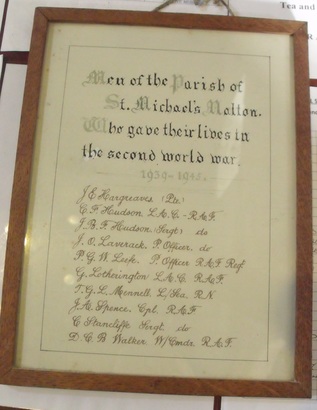 Tea and
Men of the Parish of
St. Michael's Notton.
Who gave their lives in
the second world war.
1939-1945.
J E Hargreaves (Pte)
C. F. Hudson L.A.C. - R.A.F
J. B. F. Hudson (Sergt) do
J. O. Laverack. P. Officer. do
P. G. W. Leefe. P. Officer R A F Regt
G. Lotherington L A C. R.A.F.
T. G. L. Monnell L/Sea. R N
J. A. Spence. Cpl. R A F
C Stancliffe Sergt. do
D. C. B Walker W/Cmdr R A F.